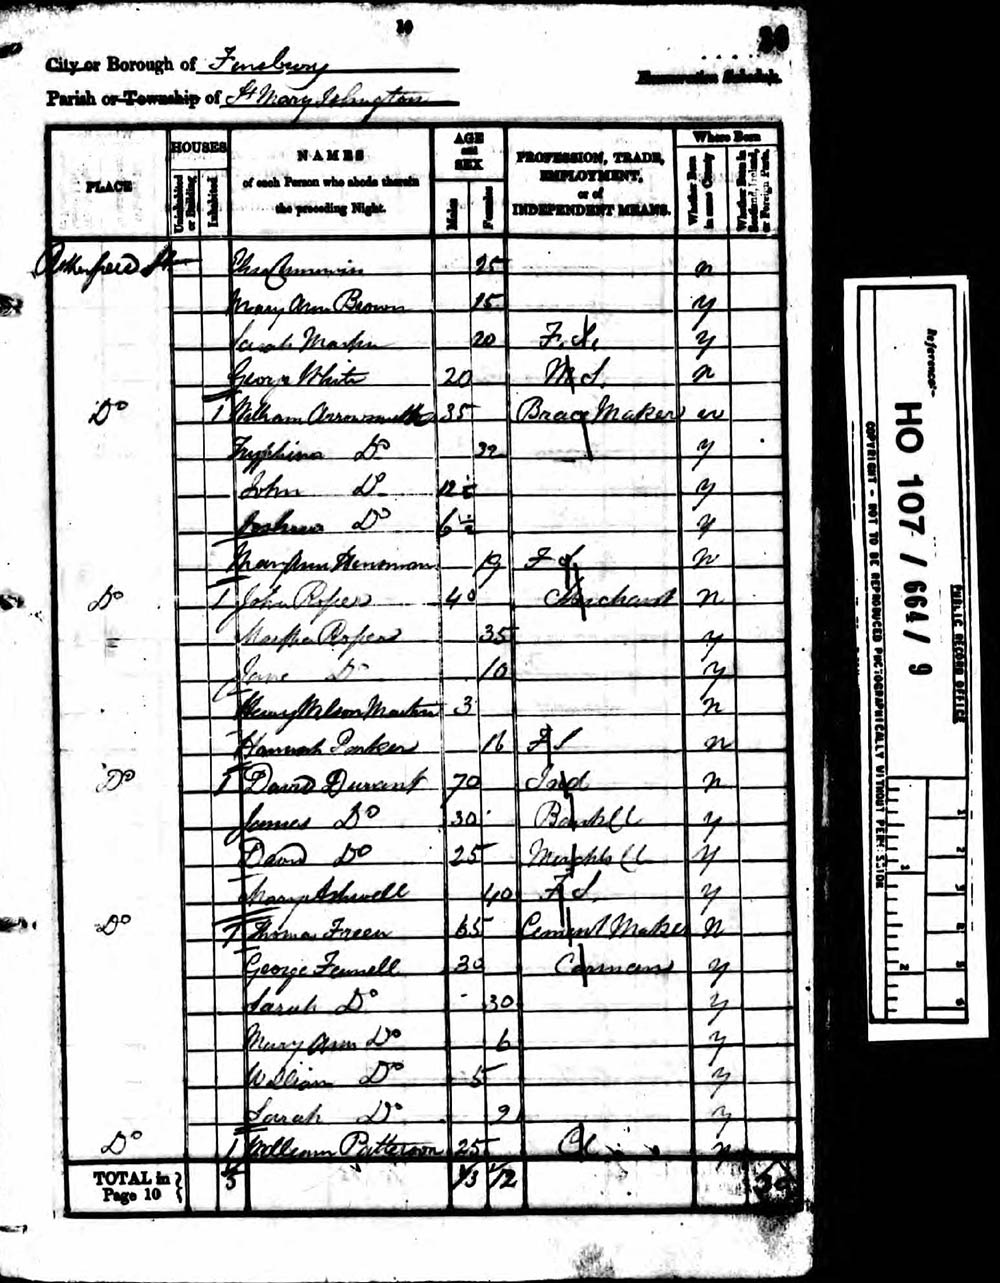 10
City or Borough of Finsbury
Parish or Township of St Mary Islington
Enumeration Schedule.
PLACE
HOUSES
Uninhabited or Building
Inhabited
NAMES
of each Person who abode therein
the preceding Night.
AGE and SEX
Males
Females
PROFESSION, TRADE,
EMPLOYMENT,
or of
INDEPENDENT MEANS.
Where Born
Whether Born in same County
Whether Born in Scotland, Ireland, or Foreign Parts.
25 n
Mary Ann Brown 15 y
Sarah 20 F.S. y
George White 20 M S. n
Do 1 William Arrowsmith 35 Brace Maker n
Tryphina Do 32 y
John Do y
Joshua Do 6 y
Mary Ann 19 F S n
Do 1 John Roper 40 Merchant n
Martha Roper 35 y
Jane Do 10 y
Henry Wilson Martin 3 n
Hannah Parker 16 F S n
Do 1 David Durrant 70 Ind n
James Do 30 Bank Cl y
David Do 25 Merchts Cl y
Mary Ashwell 40 F S. y
Do 1 Thomas Freen 65 Cement Maker n
George Fennell 30 Carman y
Sarah Do 30 y
Mary Ann Do 6 y
William Do 5 y
Sarah Do 2 y
Do 1 William Patterson 25 Cl n
TOTAL in Page 10 5 13 12
Reference:-
HO 107 / 664 / 9
PUBLIC RECORD OFFICE
COPYRIGHT - NOT TO BE REPRODUCED PHOTOGRAPHICALLY WITHOUT PERMISSION
1
2